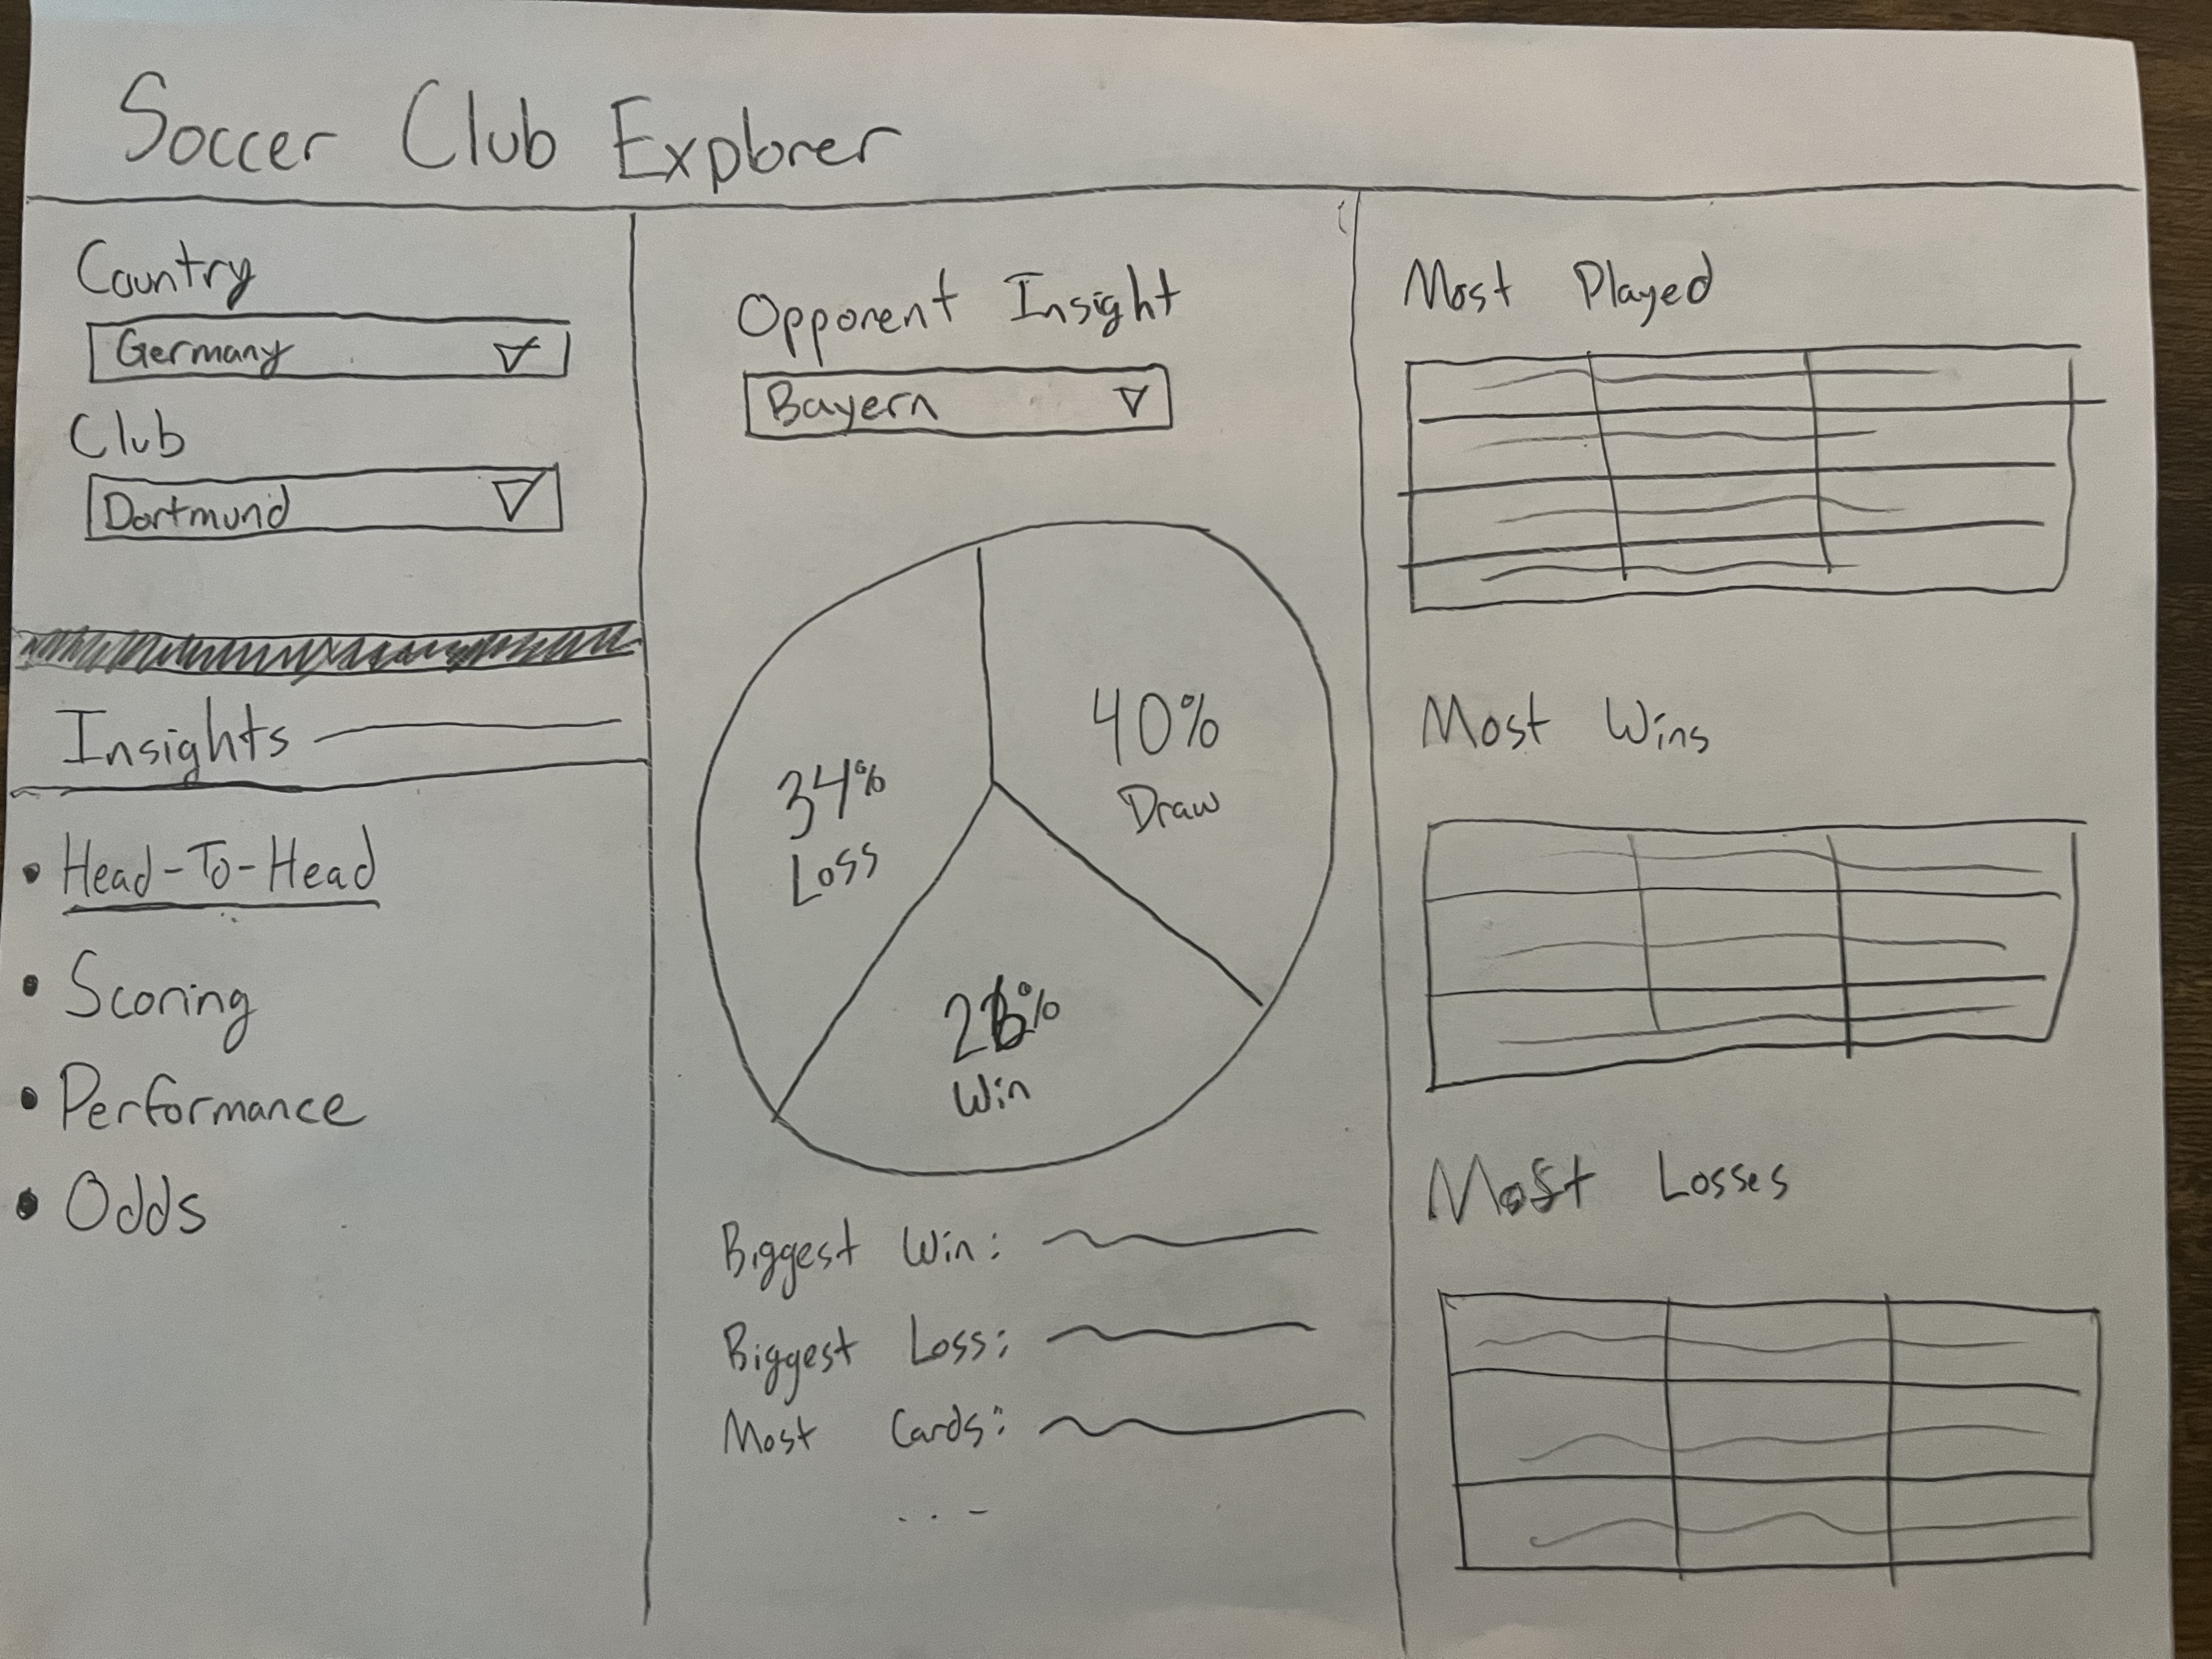 Soccer Club Explorer
Country
Germany
Club
Dortmund
Insights
• Head-To-Head
• Scoring
• Performance
• Odds
Opponent Insight
Bayern
40%
Draw
34%
Loss
26%
Win
Biggest Win:
Biggest Loss:
Most Cards:
...
Most Played
Most Wins
Most Losses